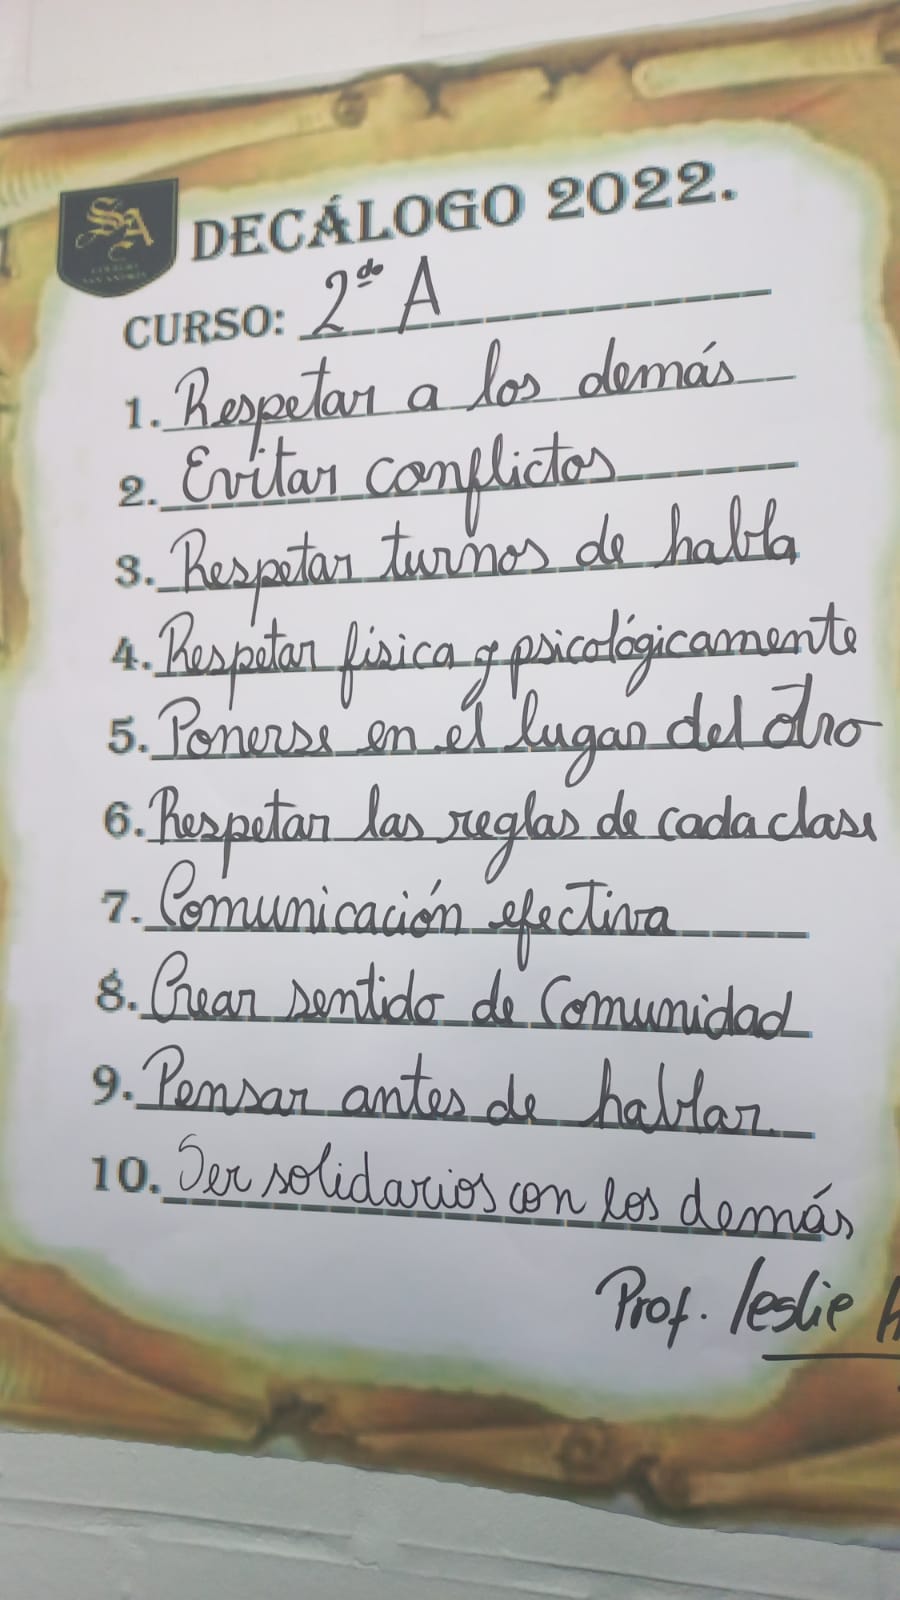 SA
COLEGIO
SAN ANDRÉS
DECÁLOGO 2022.
CURSO: 2do A
1. Respetar a los demás
2. Evitar conflictos
3. Respetar turnos de habla
4. Respetar física y psicológicamente
5. Ponerse en el lugar del otro
6. Respetar las reglas de cada clase
7. Comunicación efectiva
8. Crear sentido de Comunidad
9. Pensar antes de hablar
10. Ser solidarios con los demás
Prof. Leslie